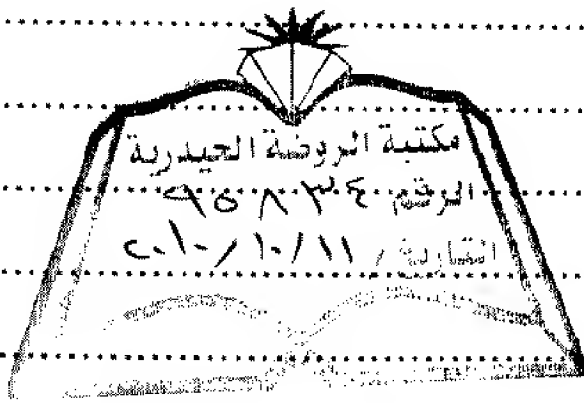 مكتبة الروضة الحيدرية
الرقم ٩٥٨٣٤
التاريخ / ١١/١٠/٢٠١٠